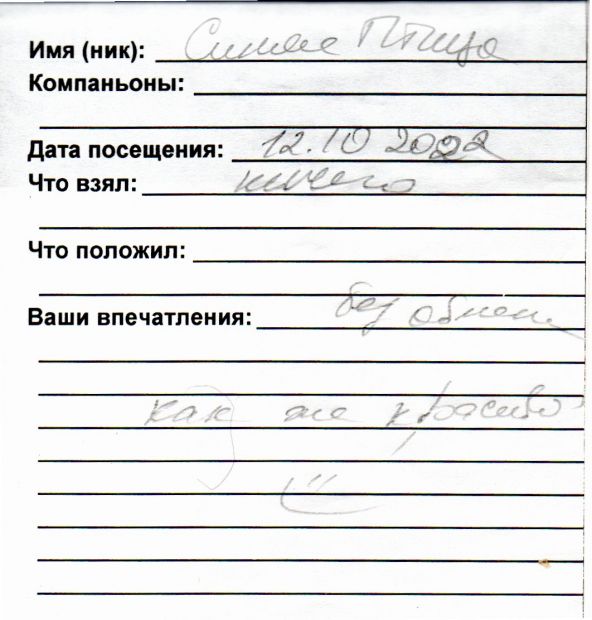 Имя (ник): Синяя Птица
Компаньоны:
Дата посещения: 12.10 2022
Что взял: ничего
Что положил:
Ваши впечатления: без обмена
как же красиво